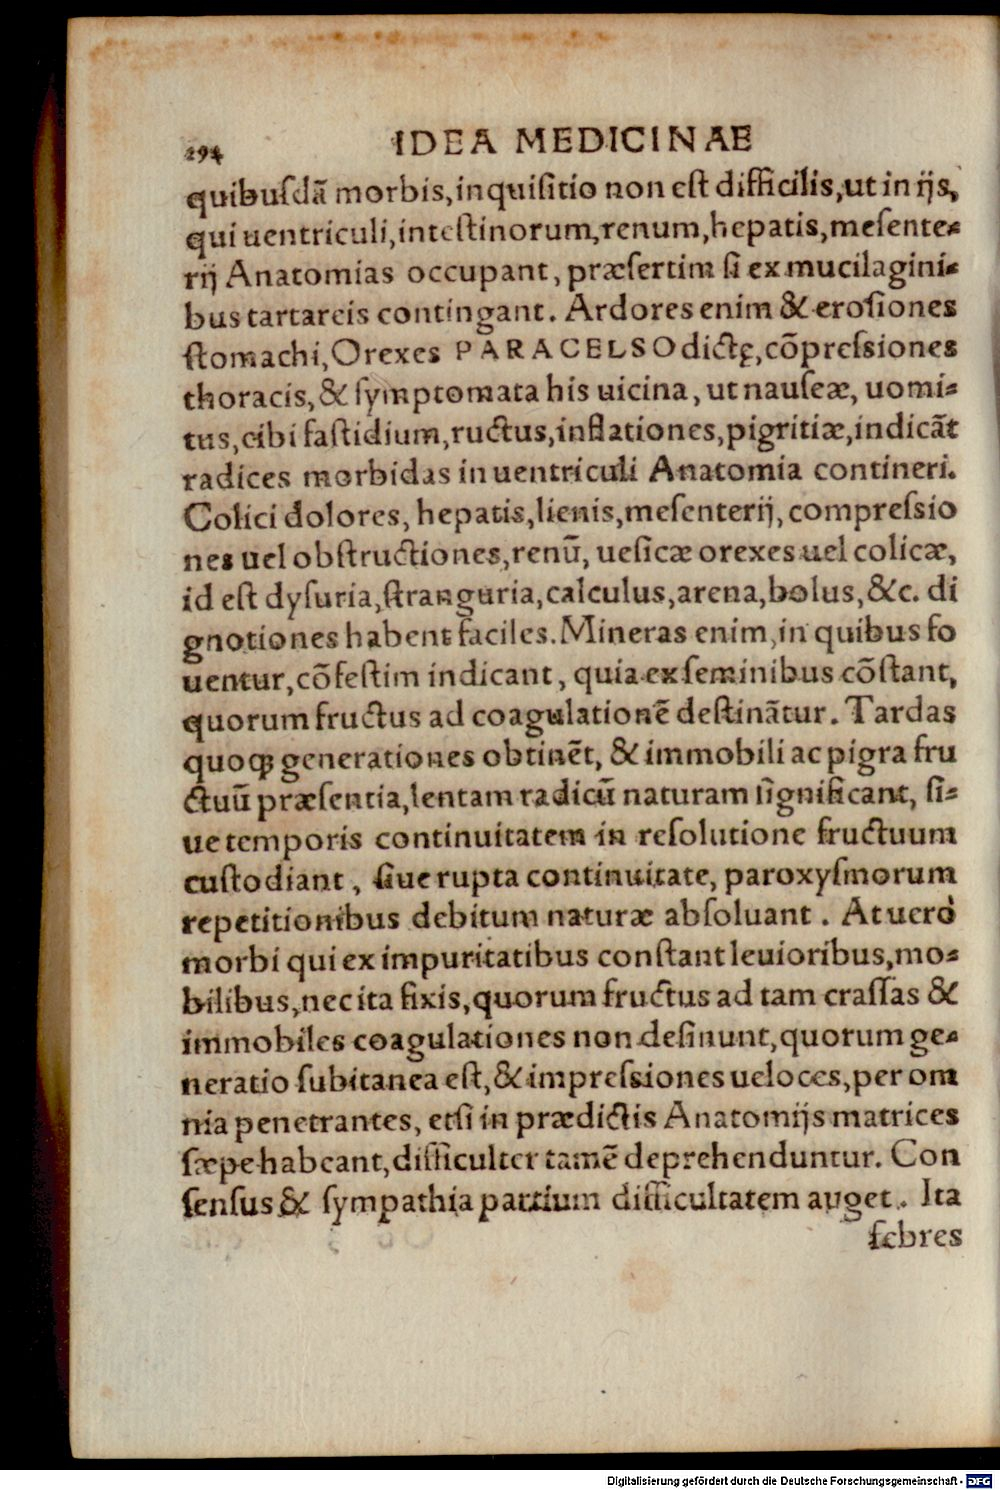 294 IDEA MEDICINAE
quibuſdã morbis, inquiſitio non eſt difficilis, ut in ijs,
qui uentriculi, inteſtinorum, renum, hepatis, meſente-
rij Anatomias occupant, præſertim ſi ex mucilagini-
bus tartareis contingant. Ardores enim & eroſiones
ſtomachi, Orexes PARACELSO dictę, cõpreſsiones
thoracis, & ſymptomata his uicina, ut nauſeæ, uomi-
tus, cibi faſtidium, ructus, inflationes, pigritiæ, indicãt
radices morbidas in uentriculi Anatomia contineri.
Colici dolores, hepatis, lienis, meſenterij, compreſsio
nes uel obſtructiones, renũ, ueſicæ orexes uel colicæ,
id eſt dyſuria, ſtranguria, calculus, arena, bolus, &c. di
gnotiones habent faciles. Mineras enim, in quibus fo
uentur, cõfeſtim indicant, quia ex ſeminibus cõſtant,
quorum fructus ad coagulationẽ deſtinãtur. Tardas
quoqꝫ generationes obtinẽt, & immobili ac pigra fru
ctuũ præſentia, lentam radicũ naturam ſignificant, ſi-
ue temporis continuitatem in reſolutione fructuum
cuſtodiant, ſiue rupta continuitate, paroxyſmorum
repetitionibus debitum naturæ abſoluant. At uerò
morbi qui ex impuritatibus conſtant leuioribus, mo-
bilibus, nec ita fixis, quorum fructus ad tam craſſas &
immobiles coagulationes non deſinunt, quorum ge-
neratio ſubitanea eſt, & impreſsiones ueloces, per om
nia penetrantes, etſi in prædictis Anatomijs matrices
ſæpe habeant, difficulter tamẽ deprehenduntur. Con
ſenſus & ſympathia partium difficultatem auget. Ita
febres
Digitalisierung gefördert durch die Deutsche Forschungsgemeinschaft - DFG